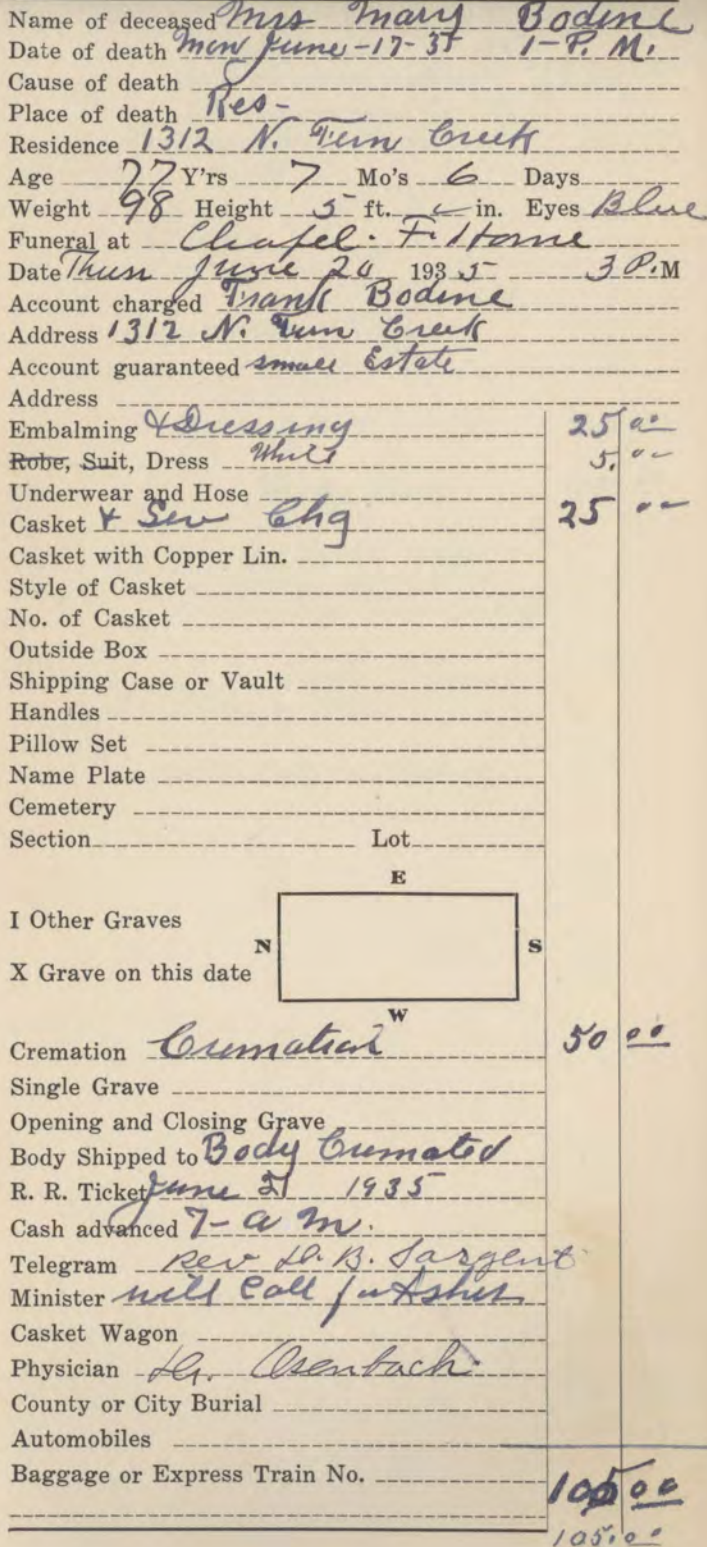 Name of deceased Mrs Mary Bodine
Date of death Mon June-17-35 1-P.M.
Cause of death
Place of death Res-
Residence 1312 N. Turn Creek
Age 77 Y'rs 7 Mo's 6 Days
Weight 98 Height 5 ft. in. Eyes Blue
Funeral at Chapel. F. Home
Date Thurs June 20 1935 3 P.M
Account charged Frank Bodine
Address 1312 N. Turn Creek
Account guaranteed small Estate
Address
Embalming & Dressing 25 00
Robe, Suit, Dress White 5. 00
Underwear and Hose
Casket & Serv Chg 25 00
Casket with Copper Lin.
Style of Casket
No. of Casket
Outside Box
Shipping Case or Vault
Handles
Pillow Set
Name Plate
Cemetery
Section Lot
E
I Other Graves
N S
X Grave on this date
W
Cremation Cremation 50 00
Single Grave
Opening and Closing Grave
Body Shipped to Body Cremated
R. R. Ticket June 21 1935
Cash advanced 7-a m.
Telegram Rev D. B. Sargent
Minister will Call for Ashes
Casket Wagon
Physician Dr. Osenbach
County or City Burial
Automobiles
Baggage or Express Train No. 105 00
105.00